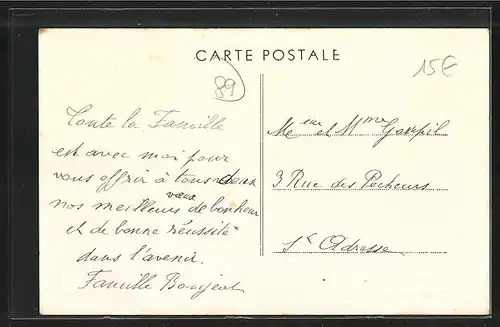 CARTE POSTALE
15€
89
Toute la Famille
est avec moi pour
vous offrir à tous deux
nos meilleurs vœux de bonheur
et de bonne réussite
dans l'avenir.
Famille
Mr et Mme
3 Rue des Pecheurs
Ste Adresse